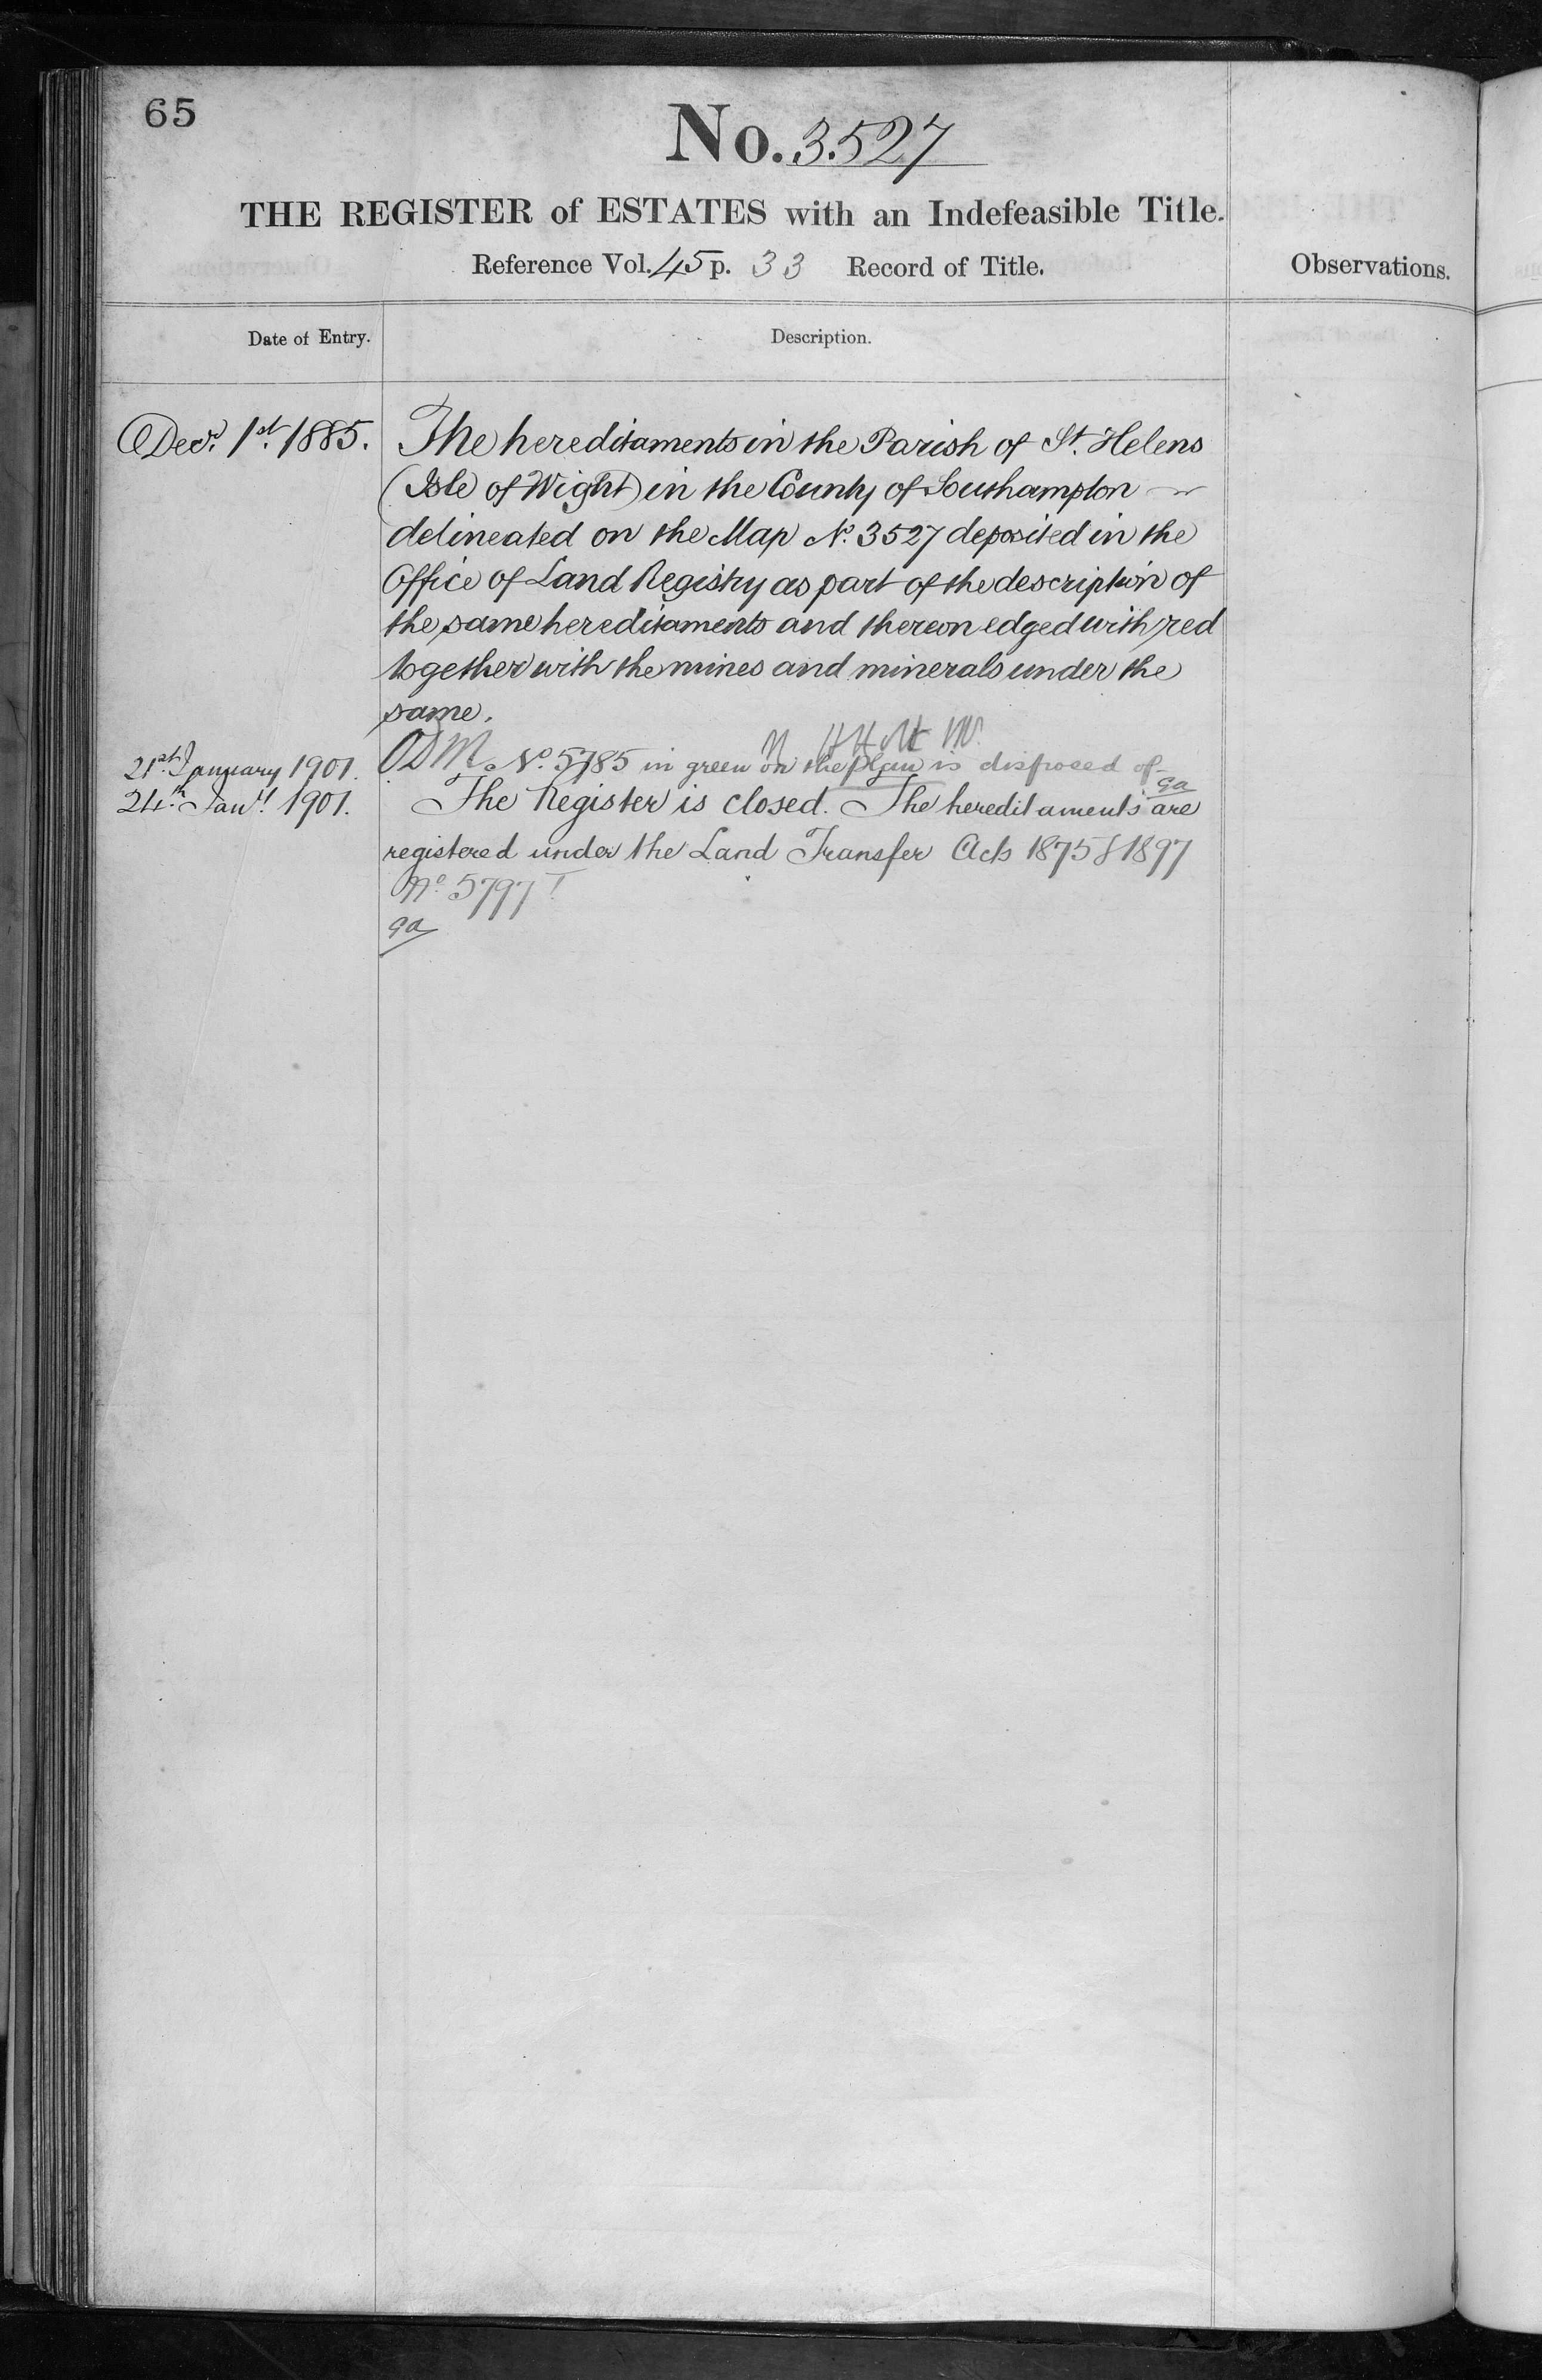 65
No. 3527
THE REGISTER of ESTATES with an Indefeasible Title.
Reference Vol. 45 p. 33 Record of Title.
Observations.
Date of Entry.
Description.
Decr. 1st. 1885.
The hereditaments in the Parish of St. Helens
(Isle of Wight) in the County of Southampton
delineated on the Map No. 3527 deposited in the
Office of Land Registry as part of the description of
the same hereditaments and thereon edged with red
together with the mines and minerals under the
same.
21st. January 1901. No. 5785 in green on the plan is disposed of
ga
24th. Jany. 1901. The Register is closed. The hereditaments are
registered under the Land Transfer Acts 1875 & 1897
No. 5797
ga